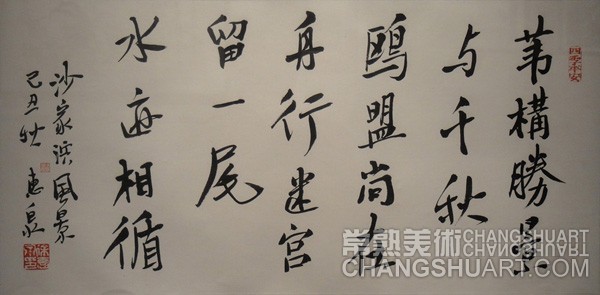 苇構勝景
与千秋
鸥盟尚在
舟行迷宫
留一尾
水迹相循
沙家浜風景
己丑秋 惠泉
四季平安
常熟美術
CHANGSHUART
CHANGSHUART.COM